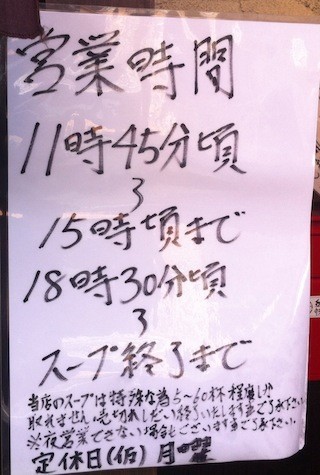 営業時間
11時45分頃
〜
15時頃まで
18時30分頃
〜
スープ終了まで
当店のスープは特殊な為5〜60杯程度しか
取れません。売切れしだい終了いたします事ご了承下さい。
※夜営業できない場合もございます事ご了承下さい
定休日(仮)月曜